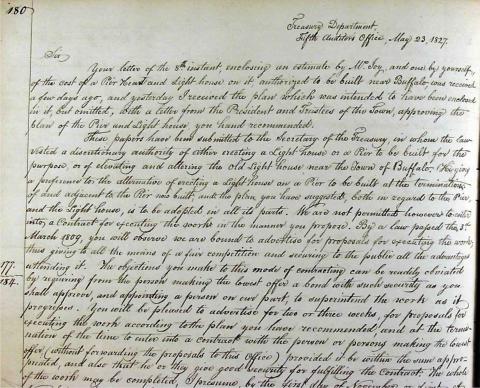 180
Treasury Department,
Fifth Auditor's Office, May 23, 1827.
Sir
Your letter of the 8th instant, enclosing an estimate by Mr. Joy, and one by yourself,
of the cost of a Pier Head and Light house on it, authorized to be built near Buffalo, was received
a few days ago, and yesterday I received the plan which was intended to have been enclosed
in it, but omitted, with a letter from the President and Trustees of the Town, approving the
plan of the Pier and Light house you had recommended.
These papers have been submitted to the Secretary of the Treasury, in whom the law
vested a discretionary authority of either erecting a Light house on a Pier to be built for the
purpose, or of elevating and altering the Old Light house near the Town of Buffalo. He gives
a preference to the alternative of erecting a Light house on a Pier to be built at the termination
of and adjacent to the Pier now built, and the plan you have suggested, both in regard to the Pier,
and the Light house, is to be adopted in all its parts. We are not permitted however to enter
into a Contract for executing the work in the manner you propose. By a law passed the 3d
March 1809, you will observe we are bound to advertise for proposals for executing the work,
thus giving to all the means of a fair competition and securing to the public all the advantages
attending it. The objections you make to this mode of contracting can be readily obviated
177
184
by requiring from the person making the lowest offer a bond with such security as you
shall approve, and appointing a person on our part, to superintend the work as it
progresses. You will be pleased to advertise for two or three weeks, for proposals for
executing the work according to the plan you have recommended, and at the termi-
nation of the time to enter into a contract with the person or persons making the lowest
offer (without forwarding the proposals to this Office) provided it be within the sum appro-
priated, and also that he or they give good security for fulfilling the Contract. The whole
of the work may be completed, I presume, by the first day of November